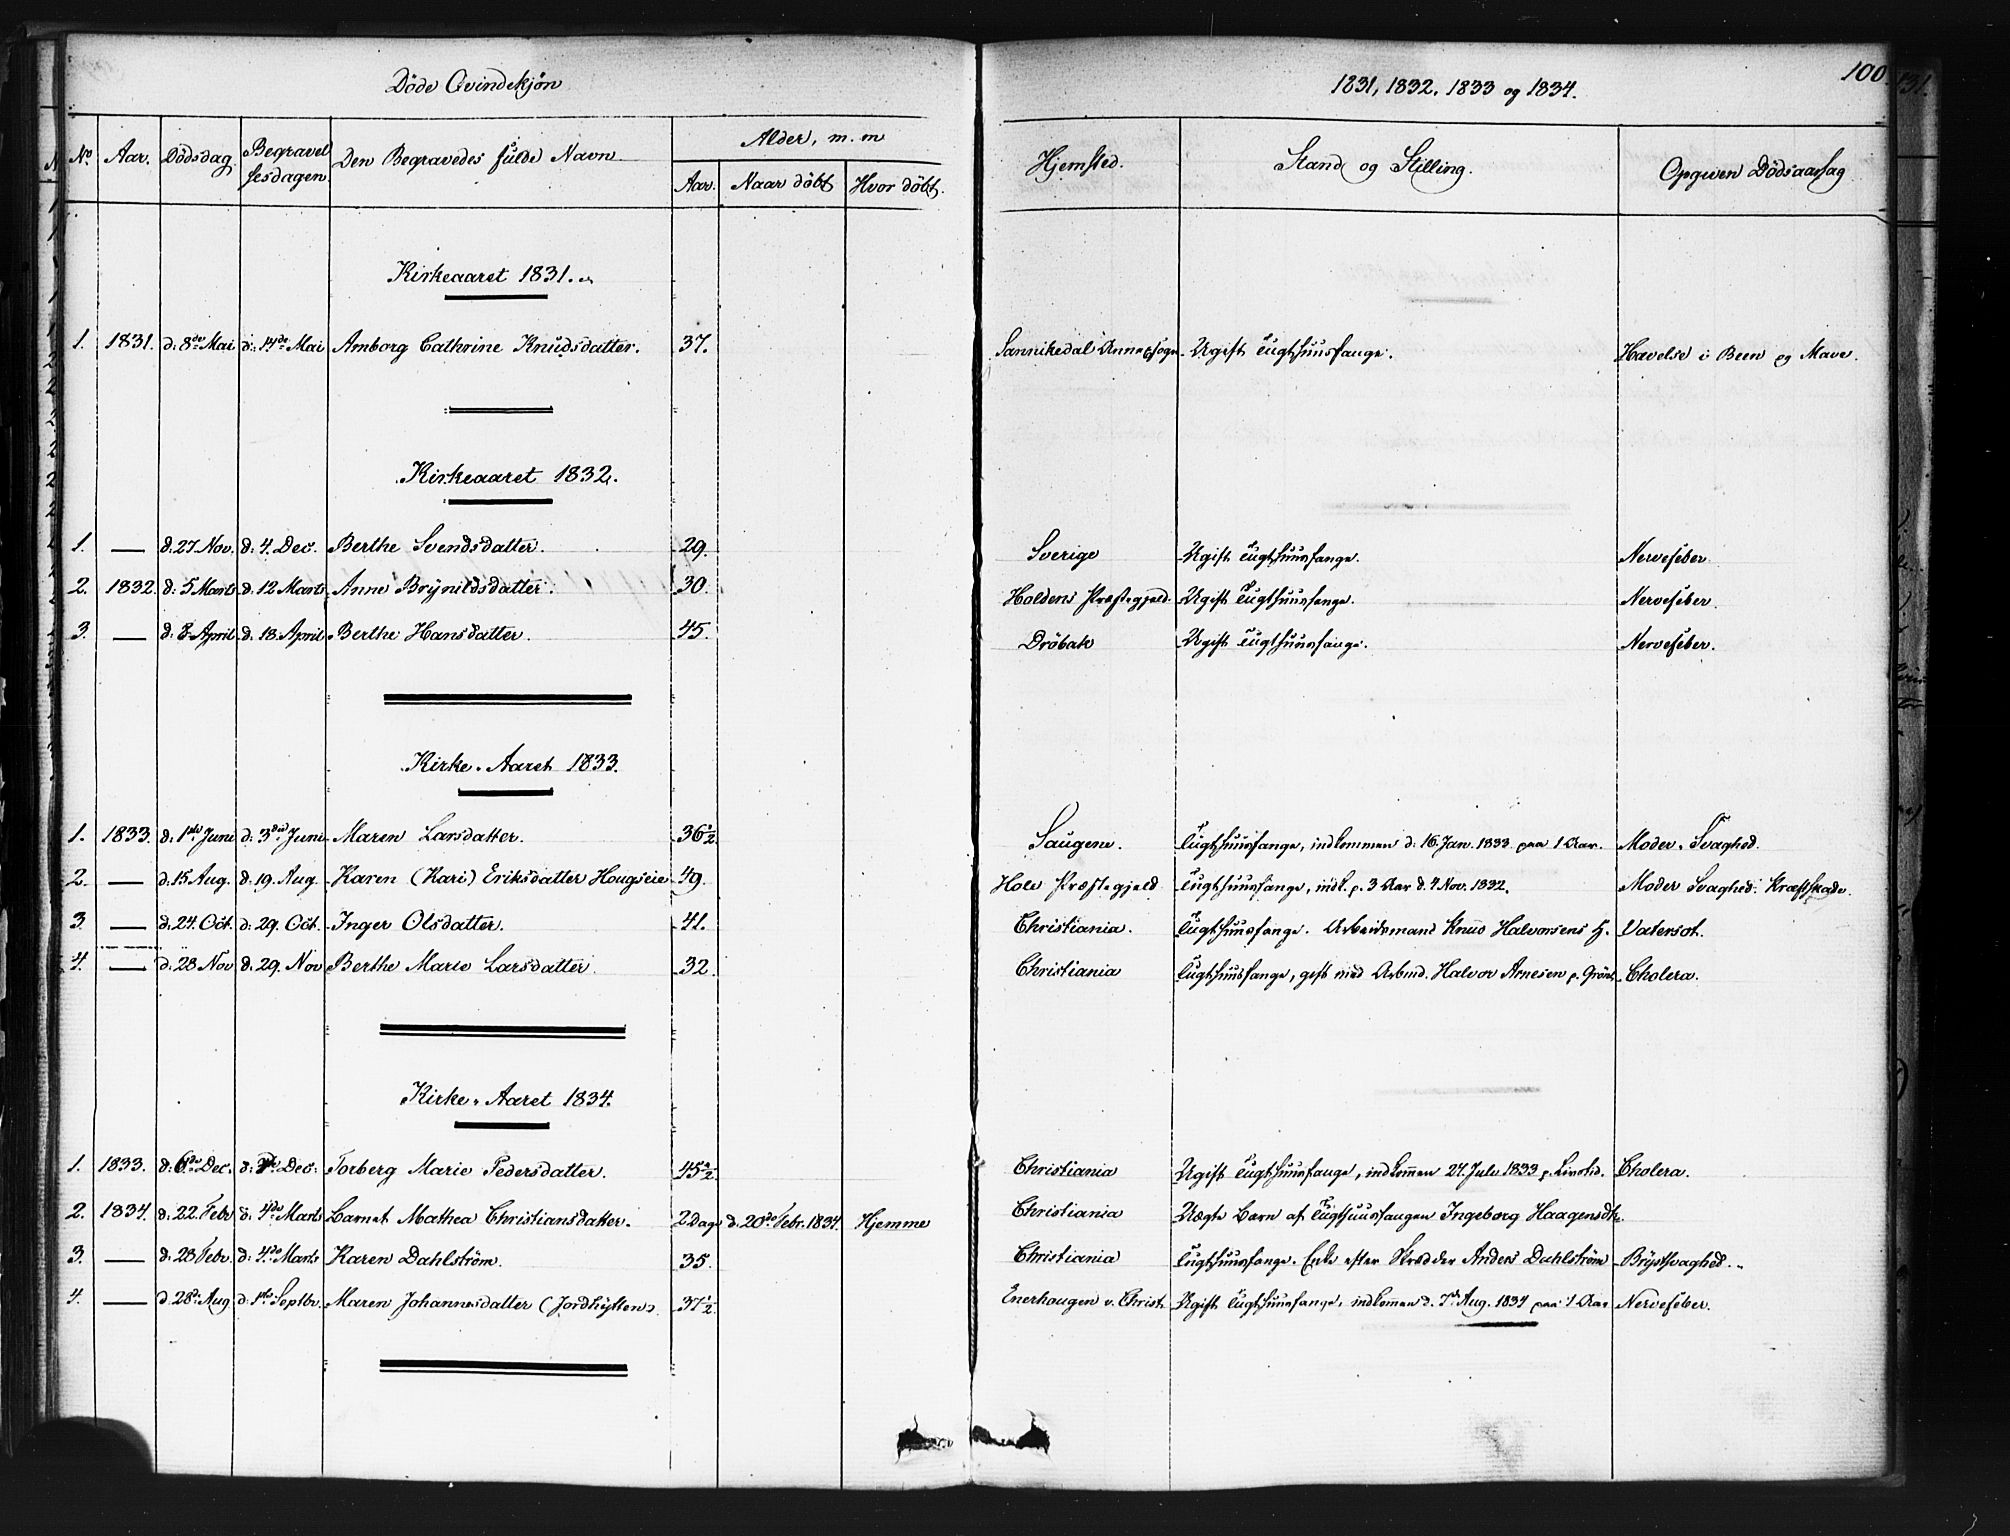 Döde Qvindekjön
1831, 1832, 1833 og 1834.
100
No. Aar. Dödsdag. Begravelsesdagen. Den Begravedes fulde Navn. Alder, m. m Hjemsted. Stand og Stilling. Opgiven Dödsaarsag
Aar. Naar döbt Hvor döbt.
Kirkeaaret 1831.
1. 1831. d. 8de Mai d. 14de Mai Amborg Cathrine Knudsdatter. 37. Sannikedal Annexsogn. Ugift Tugthuusfange. Hævelse i Been og Mave.
Kirkeaaret 1832.
1. — d. 27 Nov. d. 4. Dec. Berthe Svendsdatter. 29. Sverige Ugift Tugthuusfange. Nervefeber.
2. 1832. d. 5 Marts d. 12 Marts Anne Brynildsdatter. 30. Holdens Præstegjeld. Ugift Tugthuusfange. Nervefeber.
3. — d. 8 April d. 13. April Berthe Hansdatter. 45. Dröbak Ugift Tugthuusfange. Nervefeber.
Kirke-Aaret 1833.
1. 1833. d. 1ste Juni d. 3die Juni Maren Larsdatter. 36 1/2 Saugene. Tugthuusfange, indkommen d. 16 Jan. 1833 paa 1 Aar. Moder-Svaghed.
2. — d. 15 Aug. d. 19. Aug. Karen (Kari) Eriksdatter Hougseie 49. Hole Præstegjeld Tugthuusfange, indk. p. 3 Aar d. 4 Nov. 1832. Moder Svaghed. Kræftskade.
3. — d. 24. Oct. d. 29. Oct. Inger Olsdatter. 41. Christiania. Tugthuusfange. Arbeidsmand Knud Halvorsens H. Vatersot.
4. — d. 28 Nov d. 29. Nov Berthe Marie Larsdatter. 32. Christiania Tugthuusfange, gift med Arbmd. Halvor Arnesen p. Grönl. Cholera.
Kirke-Aaret 1834.
1. 1833. d. 6de Dec. d. Dec. Torberg Marie Pedersdatter. 45 1/2 Christiania Ugift Tugthuusfange, indkommen 27. Juli 1833 p. Livstid. Cholera.
2. 1834. d. 22. Febr d. 4de Marts Barnet Mathea Christiansdatter. 2 Dage d. 20de Febr. 1834. Hjemme Christiania Uægte Barn af Tugthuusfangen Ingeborg Haagensdtr.
3. — d. 28 Febr. d. 4de Marts Karen Dahlström. 35. Christiania Tugthuusfange. Enke efter Skrædder Anders Dahlström Brystsvaghed.
4. — d. 28de Aug d. 1ste Septbr. Maren Johannesdatter (Jordhytten). 37 1/2 Enerhougen v. Christ. Ugift Tugthuusfange, indkommen d. 7de Aug. 1834 paa 1 Aar Nervefeber.